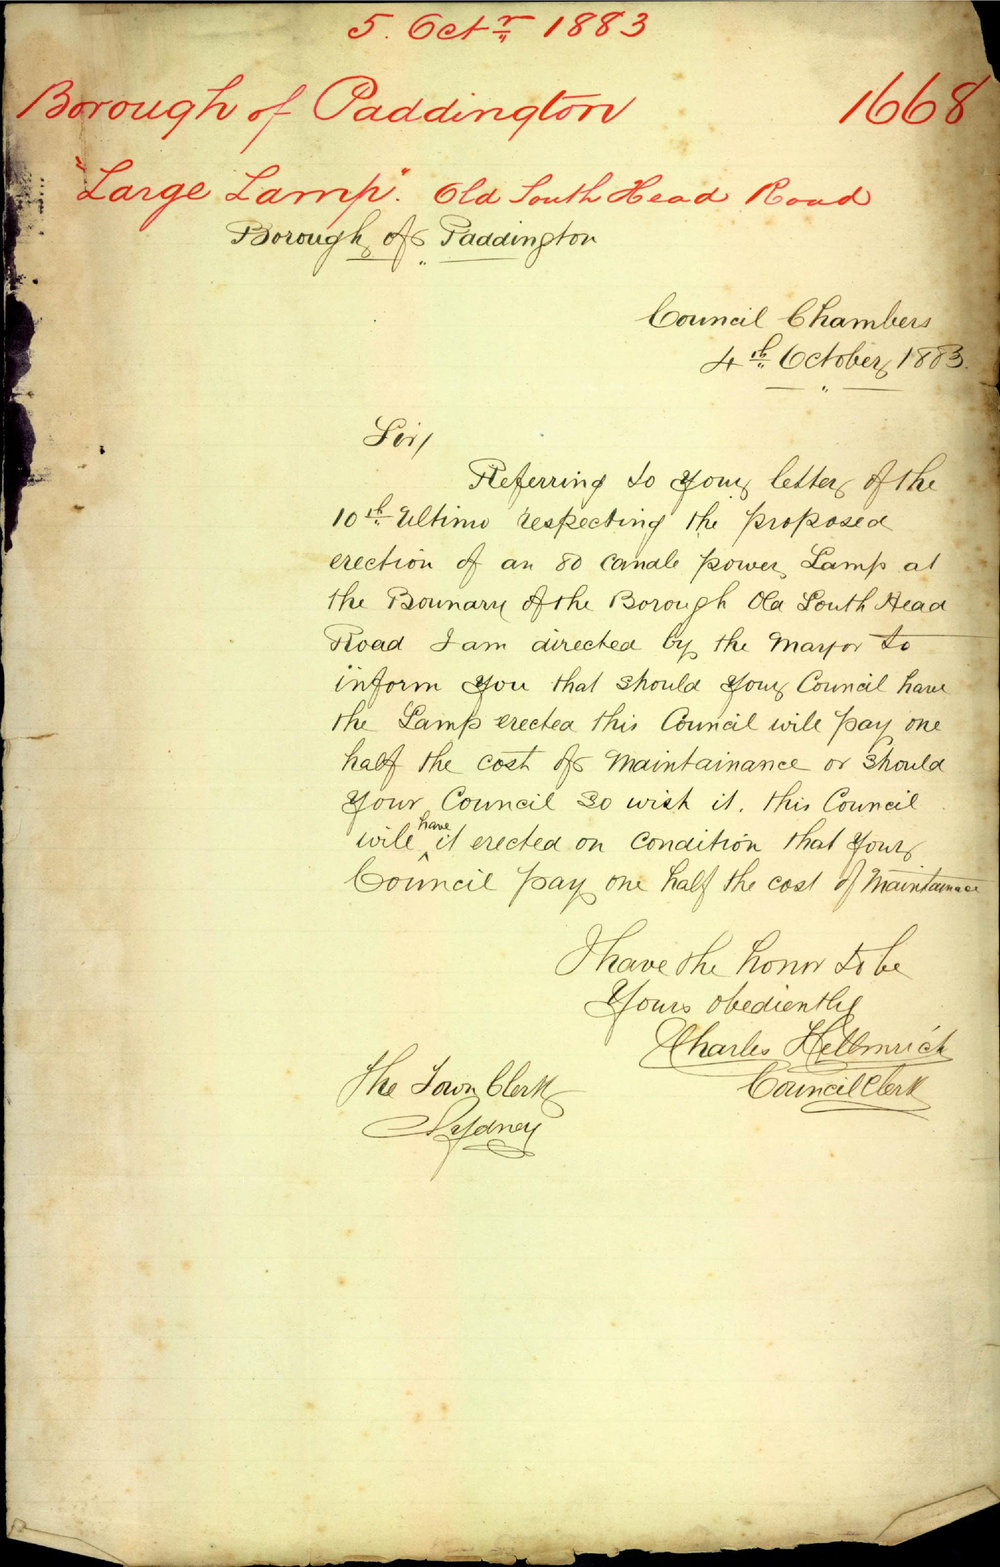 5. Octr 1883
Borough of Paddington 1668
"Large Lamp". Old South Head Road
Borough of Paddington
Council Chambers
4th October, 1883.
Sir/
Referring to your letter of the
10th Ultimo respecting the proposed
erection of an 80 candle power Lamp at
the Bounary of the Borough Old South Head
Road I am directed by the Mayor to
inform you that should your Council have
the Lamp erected this Council will pay one
half the cost of Maintainance or should
your Council so wish it, this Council
will have it erected on condition that your
Council pay one half the cost of Maintainance
I have the honor to be
Yours obediently
Charles Hellmrich
Council Clerk
The Town Clerk
Sydney